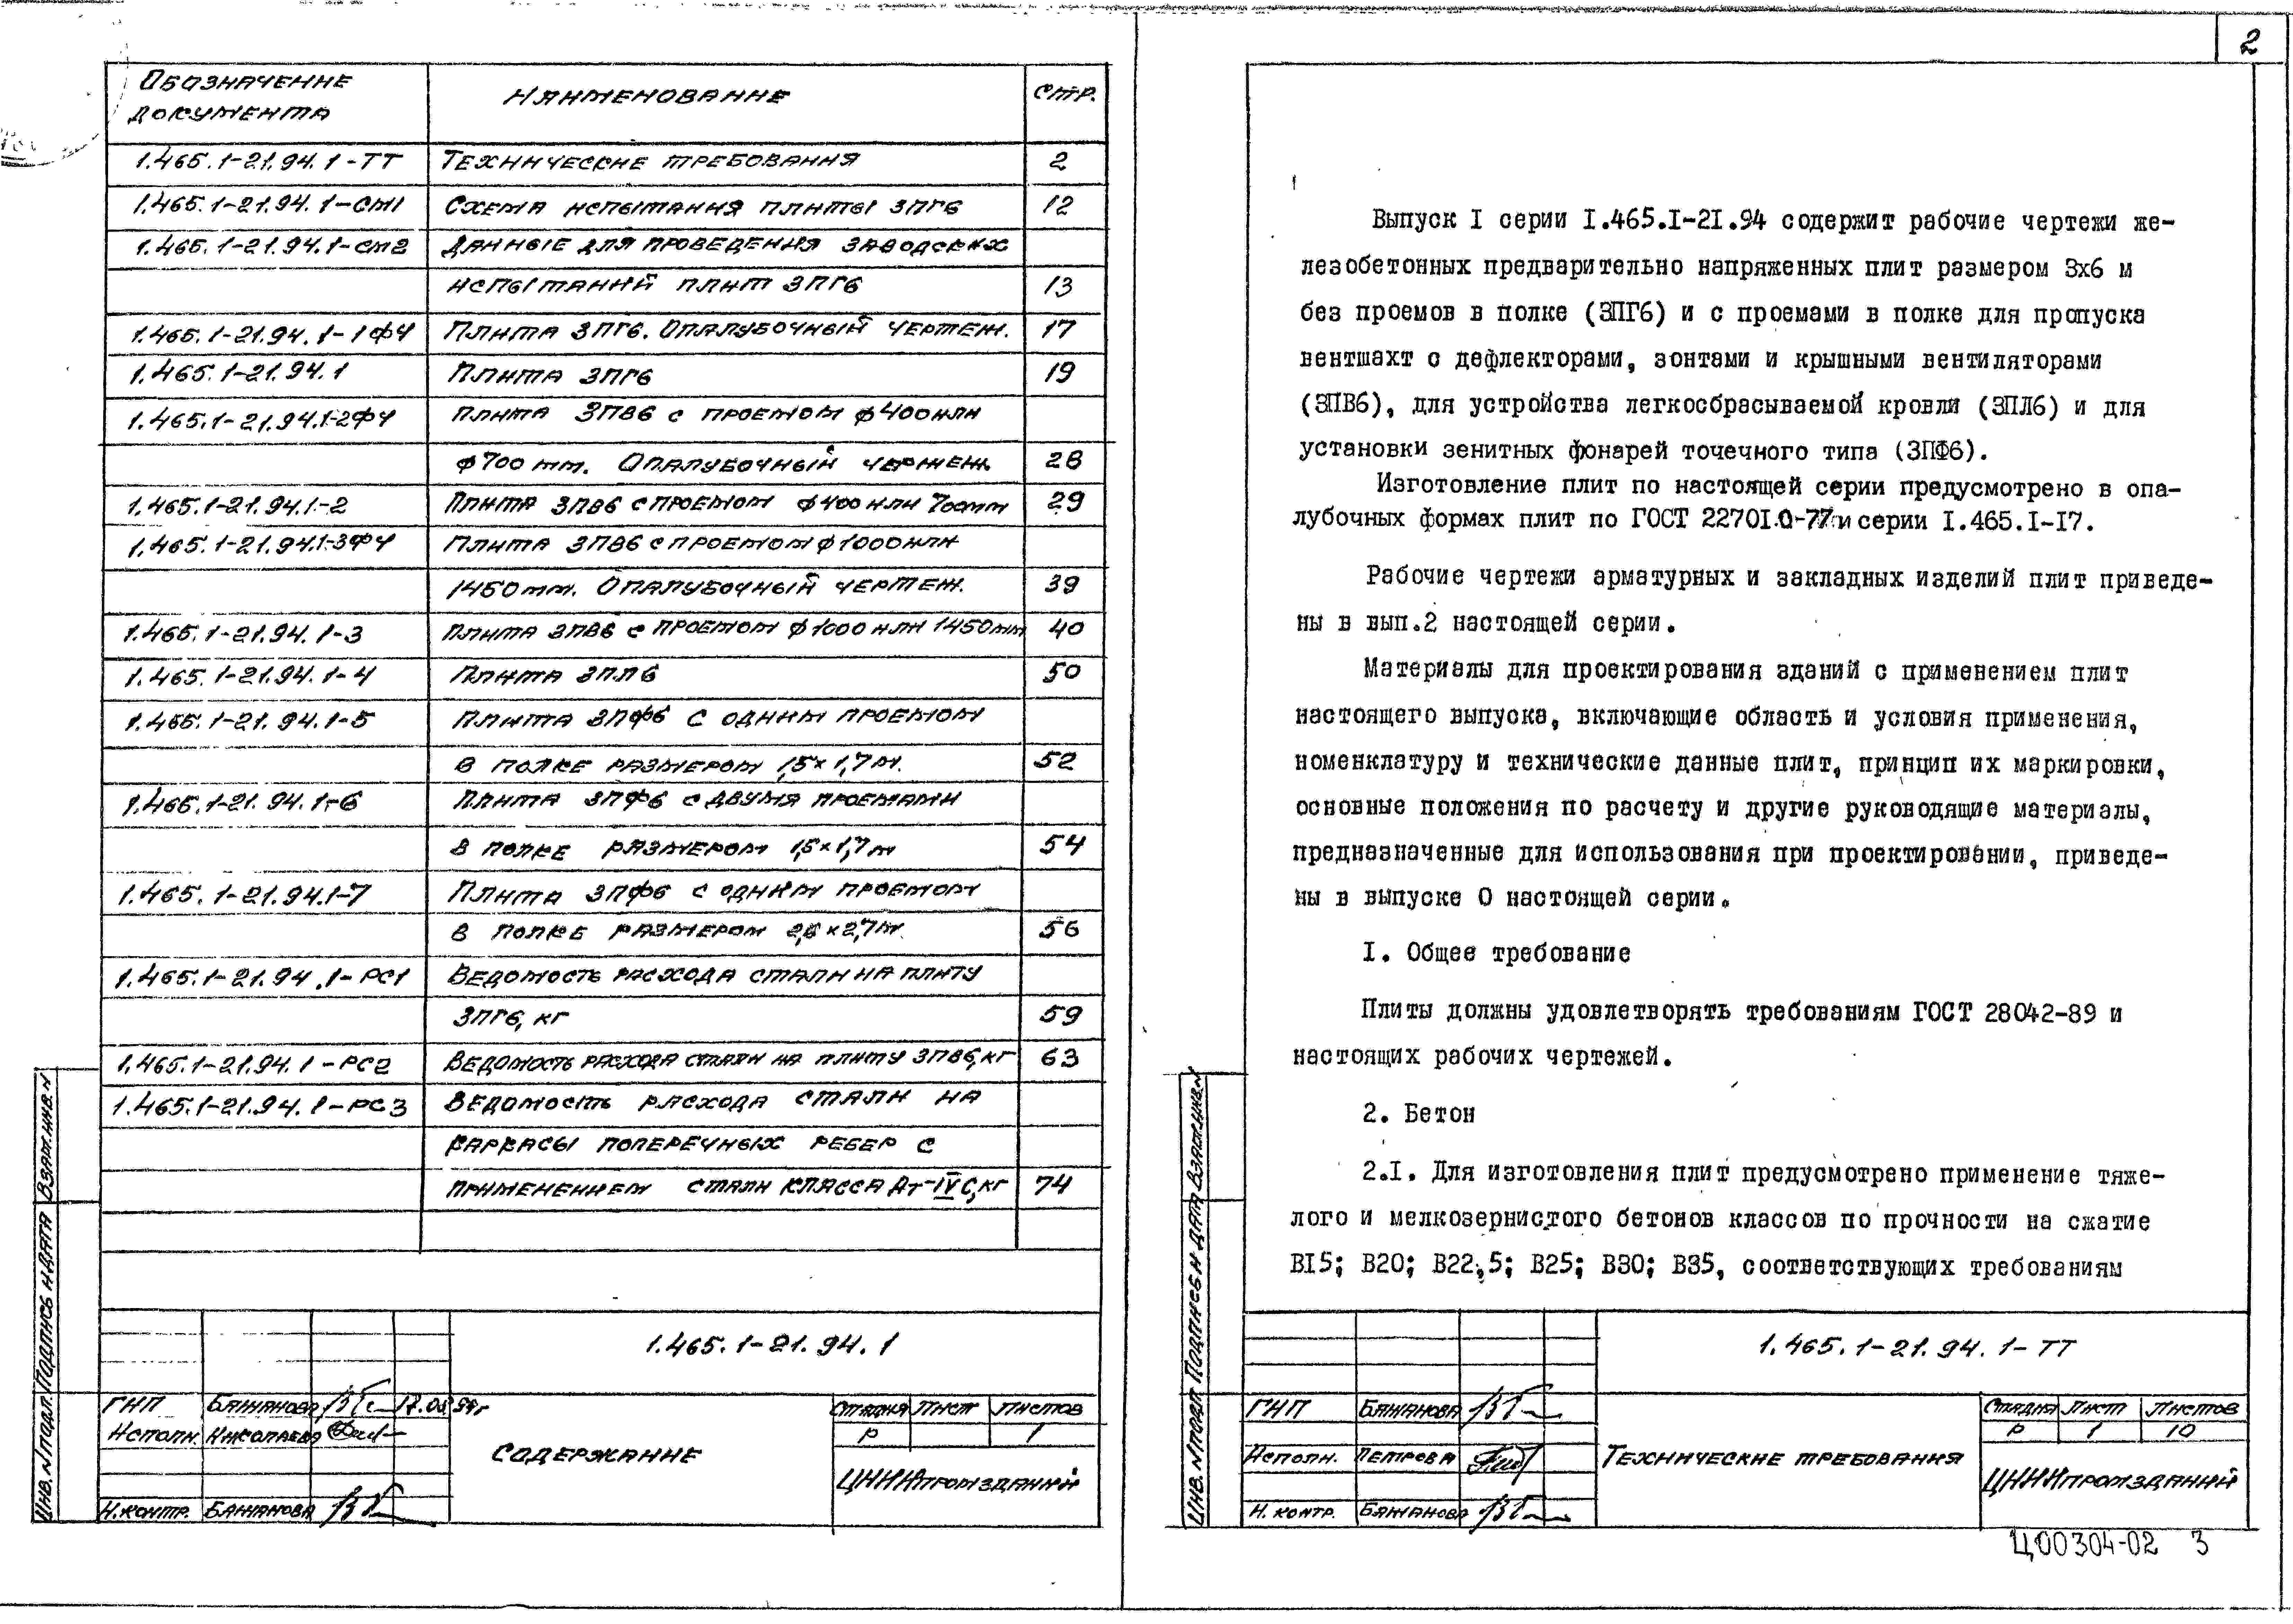 Обозначение документа Наименование Стр.
1.465.1-21.94.1-ТТ Технические требования 2
1.465.1-21.94.1-СМ1 Схема испытания плиты 3ПГ6 12
1.465.1-21.94.1-СМ2 Данные для проведения заводских
испытаний плит 3ПГ6 13
1.465.1-21.94.1-1ФЧ Плита 3ПГ6. Опалубочный чертеж. 17
1.465.1-21.94.1 Плита 3ПГ6 19
1.465.1-21.94.1-2ФЧ Плита 3ПВ6 с проемом ф 400 или
ф 700 мм. Опалубочный чертеж 28
1.465.1-21.94.1-2 Плита 3ПВ6 с проемом ф 400 или 700мм 29
1.465.1-21.94.1-3ФЧ Плита 3ПВ6 с проемом ф 1000 или
1450 мм. Опалубочный чертеж. 39
1.465.1-21.94.1-3 Плита 3ПВ6 с проемом ф 1000 или 1450мм 40
1.465.1-21.94.1-4 Плита 3ПЛ6 50
1.465.1-21.94.1-5 Плита 3ПФ6 с одним проемом
в полке размером 1,5×1,7м. 52
1.465.1-21.94.1-6 Плита 3ПФ6 с двумя проемами
в полке размером 1,5×1,7м 54
1.465.1-21.94.1-7 Плита 3ПФ6 с одним проемом
в полке размером 2,5×2,7м. 56
1.465.1-21.94.1-РС1 Ведомость расхода стали на плиту
3ПГ6, кг 59
1.465.1-21.94.1-РС2 Ведомость расхода стали на плиту 3ПВ6, кг 63
1.465.1-21.94.1-РС3 Ведомость расхода стали на
каркасы поперечных ребер с
применением стали класса Ат-IVС, кг 74
1.465.1-21.94.1
ГИП Бажанова 17.03.94г
Исполн. Николаева
Н.контр. Бажанова
Содержание
Стадия Лист Листов
Р 1
ЦНИИпромзданий
Инв. № подл. Подпись и дата Взам. инв. №
2
Выпуск I серии I.465.I-2I.94 содержит рабочие чертежи же-
лезобетонных предварительно напряженных плит размером 3х6 м
без проемов в полке (3ПГ6) и с проемами в полке для пропуска
вентшахт с дефлекторами, зонтами и крышными вентиляторами
(3ПВ6), для устройства легкосбрасываемой кровли (3ПЛ6) и для
установки зенитных фонарей точечного типа (3ПФ6).
Изготовление плит по настоящей серии предусмотрено в опа-
лубочных формах плит по ГОСТ 22701.0-77 и серии I.465.I-I7.
Рабочие чертежи арматурных и закладных изделий плит приведе-
ны в вып.2 настоящей серии.
Материалы для проектирования зданий с применением плит
настоящего выпуска, включающие область и условия применения,
номенклатуру и технические данные плит, принцип их маркировки,
основные положения по расчету и другие руководящие материалы,
предназначенные для использования при проектировании, приведе-
ны в выпуске 0 настоящей серии.
I. Общее требование
Плиты должны удовлетворять требованиям ГОСТ 28042-89 и
настоящих рабочих чертежей.
2. Бетон
2.I. Для изготовления плит предусмотрено применение тяже-
лого и мелкозернистого бетонов классов по прочности на сжатие
BI5; B20; B22,5; B25; B30; B35, соответствующих требованиям
1.465.1-21.94.1-ТТ
ГИП Бажанова
Исполн. Петрова
Н. контр. Бажанова
Технические требования
Стадия Лист Листов
Р 1 10
ЦНИИпромзданий
Инв. № подл. Подпись и дата Взам. инв. №
Ц00304-02 3